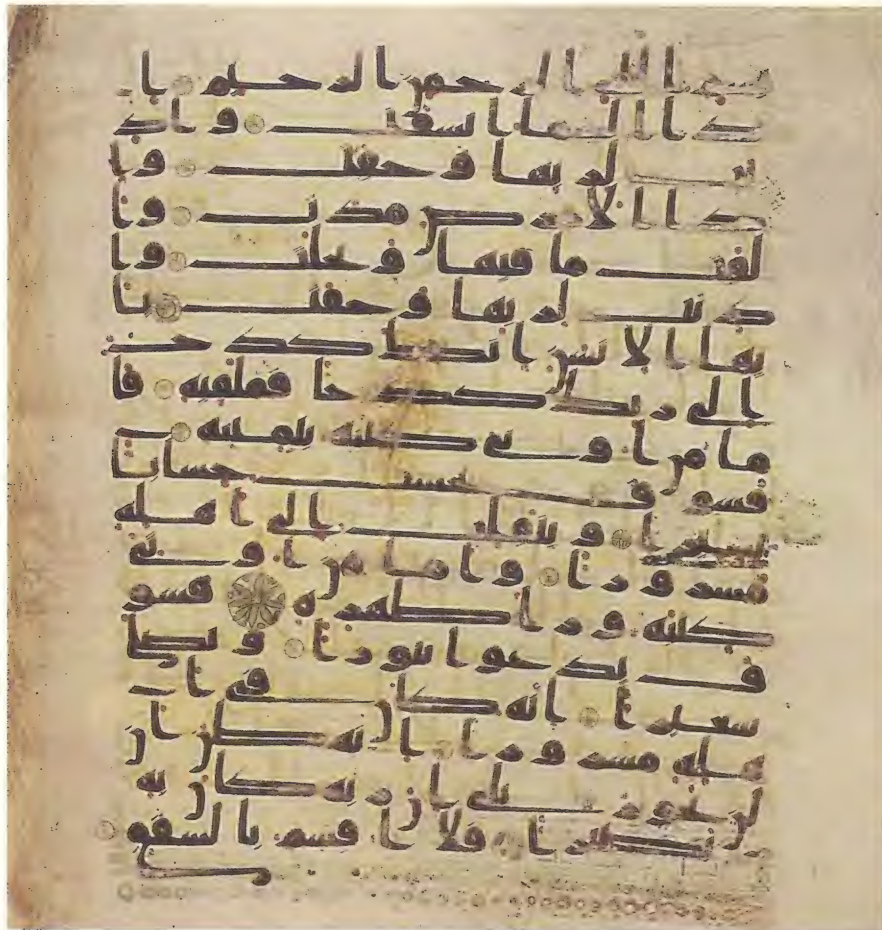 بسم الله الرحمن الرحيم ا
ذا السما انشقت واذ
نت لربها وحقت وا
ذا الارض مدت وا
لقت ما فيها وتخلت وا
ذنت لربها وحقت يا
يها الانسن انك كادح
الى ربك كدحا فملقيه فا
ما من اوتى كتبه بيمينه
فسوف يحسب حسابا
يسيرا وينقلب الى اهله
مسرورا واما من اوتى
كتبه ورا ظهره فسو
ف يدعوا ثبورا ويصلى
سعيرا انه كان فى ا
هله مسرورا انه ظن ان
لن يحور بلى ان ربه كان به
بصيرا فلا اقسم بالشفق